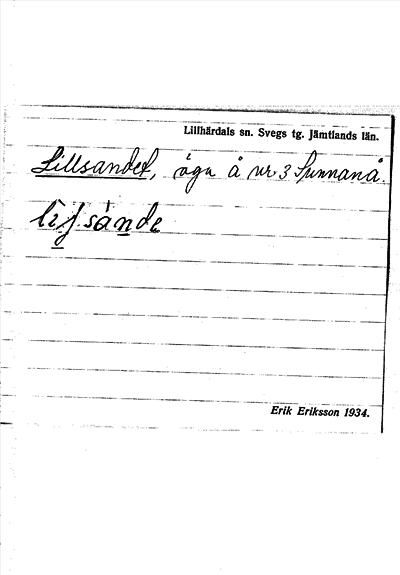 Lillhärdals sn. Svegs tg. Jämtlands län.
Lillsandet, äga å nr 3 Sunnanå.
Erik Eriksson 1934.